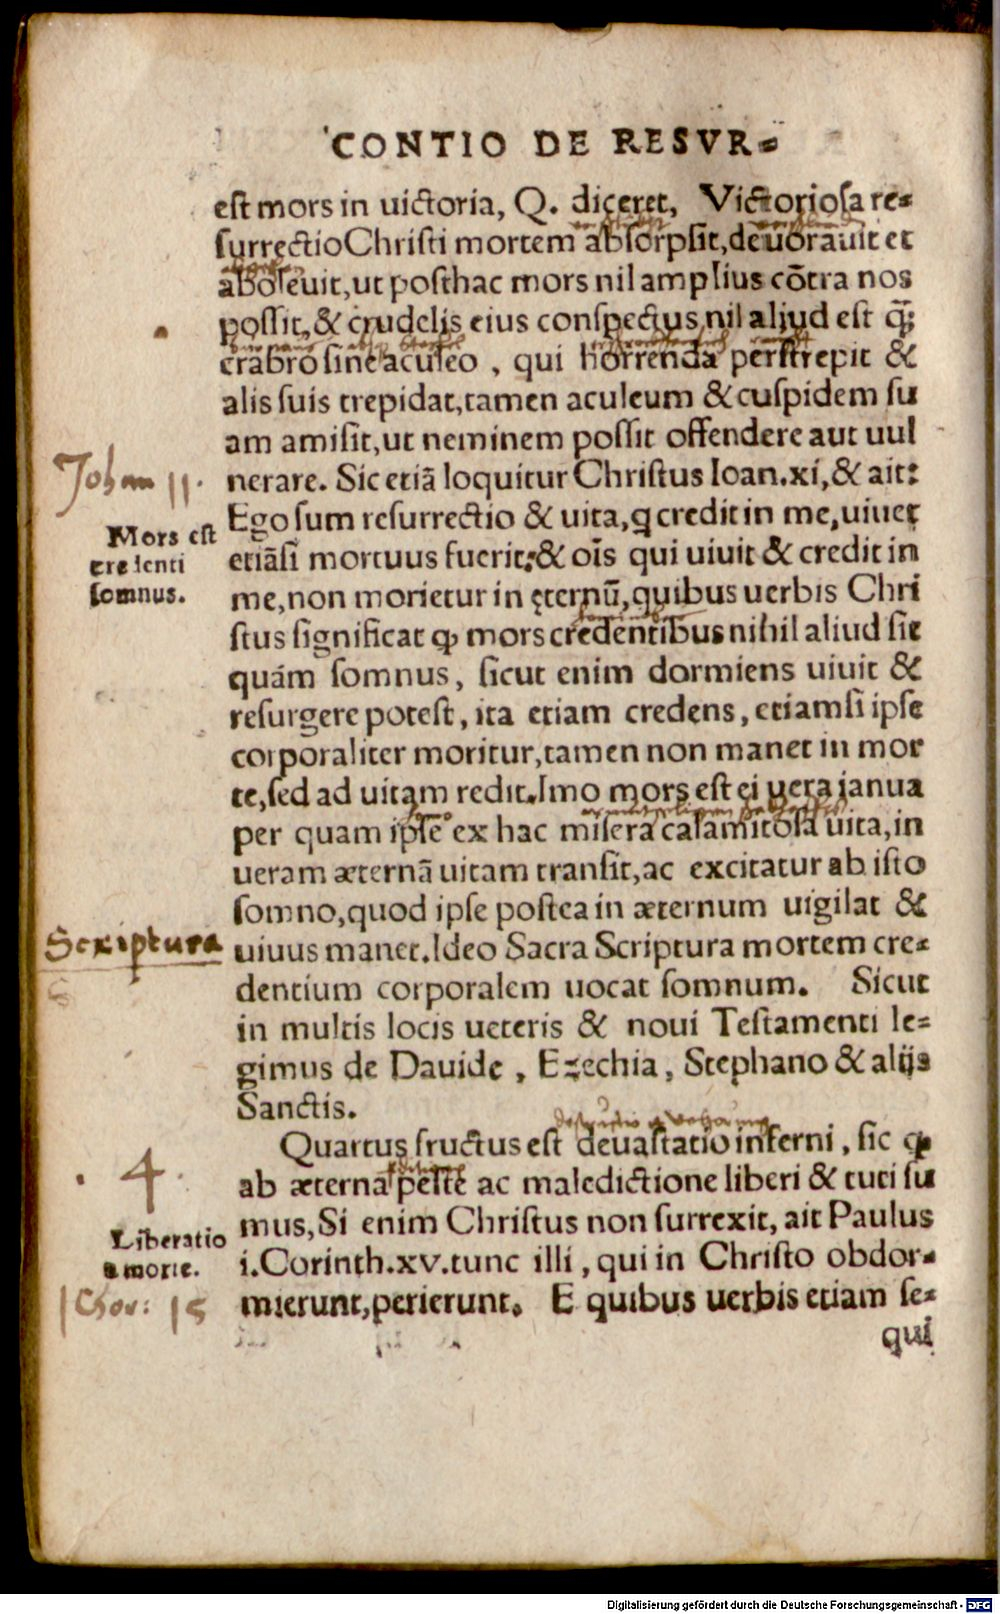 CONTIO DE RESVR-
est mors in uictoria, Q. diceret, Victoriosa re-
surrectio Christi mortem absorpsit, deuorauit et
aboleuit, ut posthac mors nil amplius cõtra nos
possit, & crudelis eius conspectus nil aliud est q̃;
crabro sine aculeo, qui horrenda perstrepit &
alis suis trepidat, tamen aculeum & cuspidem su
am amisit, ut neminem possit offendere aut uul
Johan 11.
nerare. Sic etiã loquitur Christus Ioan. xi, & ait:
Mors est
credenti
somnus.
Ego sum resurrectio & uita, q credit in me, uiuet
etiãsi mortuus fuerit: & oĩs qui uiuit & credit in
me, non morietur in ęternũ, quibus uerbis Chri
stus significat ꝙ mors credentibus nihil aliud sit
quám somnus, sicut enim dormiens uiuit &
resurgere potest, ita etiam credens, etiamsi ipse
corporaliter moritur, tamen non manet in mor
te, sed ad uitam redit. Imo mors est ei uera ianua
homo
per quam ipse ex hac misera calamitosa uita, in
ueram æternã uitam transit, ac excitatur ab isto
somno, quod ipse postea in æternum uigilat &
Scriptura
uiuus manet. Ideo Sacra Scriptura mortem cre-
dentium corporalem uocat somnum. Sicut
in multis locis ueteris & noui Testamenti le-
gimus de Dauide, Ezechia, Stephano & alijs
Sanctis.
4
Quartus fructus est deuastatio inferni, sic ꝙ
ab æterna peste ac maledictione liberi & tuti su
Liberatio
a morte.
mus, Si enim Christus non surrexit, ait Paulus
i. Corinth. xv. tunc illi, qui in Christo obdor-
1 Chor: 15
mierunt, perierunt. E quibus uerbis etiam se-
qui
Digitalisierung gefördert durch die Deutsche Forschungsgemeinschaft - DFG